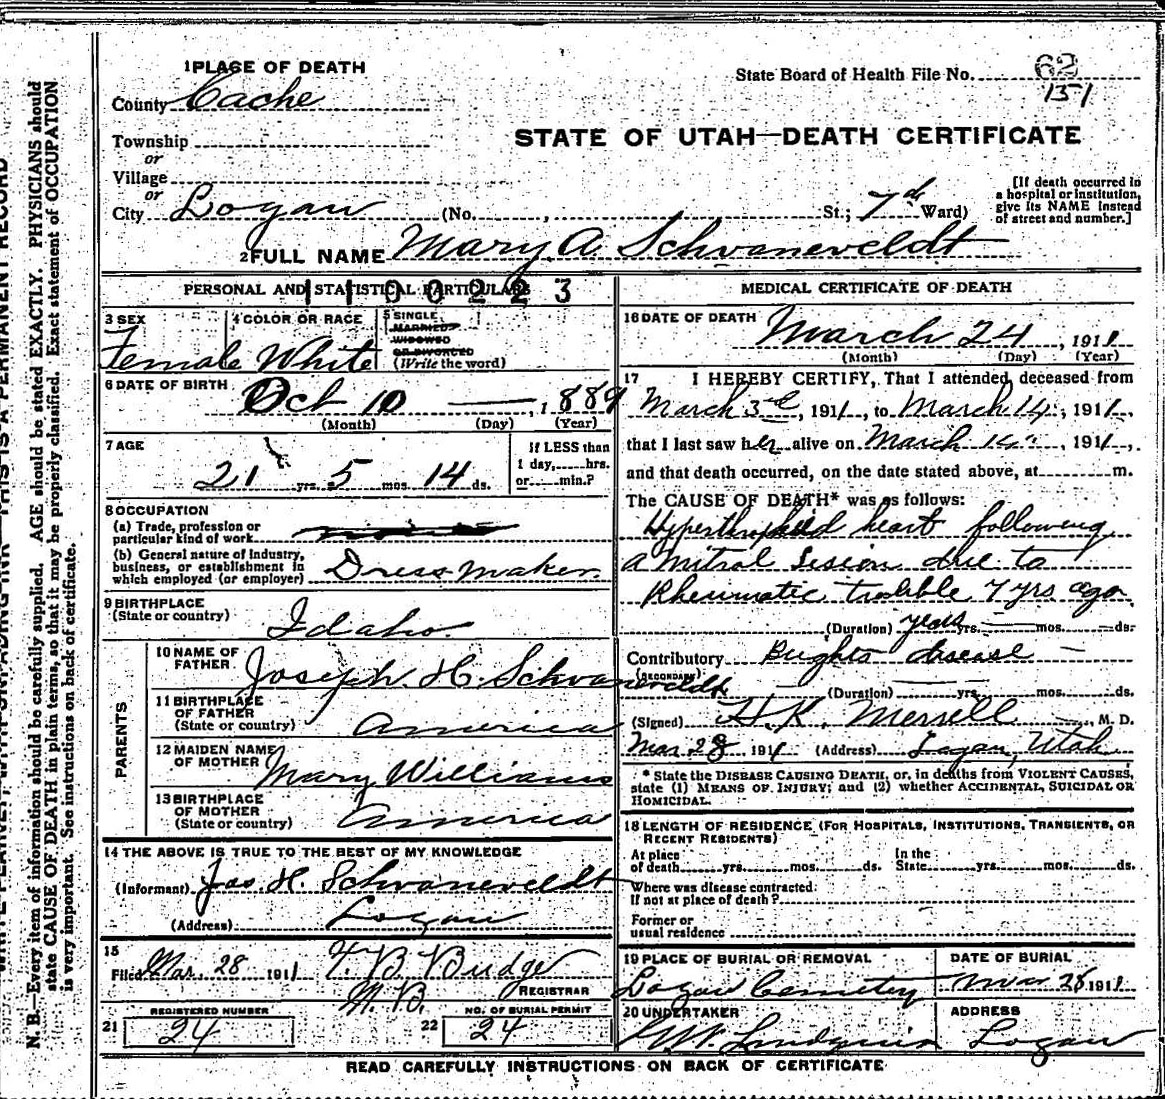 1 PLACE OF DEATH
County Cache
State Board of Health File No. 62
151
Township
or
Village
or
City Logan (No. , St.; 7th Ward)
STATE OF UTAH—DEATH CERTIFICATE
[If death occurred in
a hospital or institution,
give its NAME instead
of street and number.]
2 FULL NAME Mary A. Schvaneveldt
PERSONAL AND STATISTICAL PARTICULARS
1100223
3 SEX
Female
4 COLOR OR RACE
White
5 SINGLE
MARRIED
WIDOWED
OR DIVORCED
(Write the word)
6 DATE OF BIRTH
Oct 10 , 1889
(Month) (Day) (Year)
7 AGE
21 yrs. 5 mos. 14 ds.
If LESS than
1 day, hrs.
or min.?
8 OCCUPATION
(a) Trade, profession or
particular kind of work
(b) General nature of industry,
business, or establishment in
which employed (or employer) Dress maker.
9 BIRTHPLACE
(State or country) Idaho.
PARENTS
10 NAME OF
FATHER Joseph H. Schvaneveldt
11 BIRTHPLACE
OF FATHER
(State or country) America
12 MAIDEN NAME
OF MOTHER Mary Williams
13 BIRTHPLACE
OF MOTHER
(State or country) America
14 THE ABOVE IS TRUE TO THE BEST OF MY KNOWLEDGE
(Informant) Jos. H. Schvaneveldt
(Address) Logan
15
Filed Mar. 28 1911 T. B. Budge
M. D. REGISTRAR
REGISTERED NUMBER
21 24
NO. OF BURIAL PERMIT
22 24
MEDICAL CERTIFICATE OF DEATH
16 DATE OF DEATH March 24 , 1911
(Month) (Day) (Year)
17 I HEREBY CERTIFY, That I attended deceased from
March 3rd, 1911, to March 14, 1911,
that I last saw her alive on March 14", 1911,
and that death occurred, on the date stated above, at m.
The CAUSE OF DEATH* was as follows:
Hyperthrophied heart following
a mitral Lesion due to
Rheumatic trouble 7 yrs ago
(Duration) years yrs. mos. ds.
Contributory Brights disease
(SECONDARY)
(Duration) yrs. mos. ds.
(Signed) H. K. Merrell , M. D.
Mar 28, 1911 (Address) Logan, Utah
* State the DISEASE CAUSING DEATH, or, in deaths from VIOLENT CAUSES,
state (1) MEANS OF INJURY; and (2) whether ACCIDENTAL, SUICIDAL OR
HOMICIDAL.
18 LENGTH OF RESIDENCE (FOR HOSPITALS, INSTITUTIONS, TRANSIENTS, OR
RECENT RESIDENTS)
At place
of death yrs. mos. ds.
In the
State yrs. mos. ds.
Where was disease contracted.
If not at place of death?
Former or
usual residence
19 PLACE OF BURIAL OR REMOVAL
Logan Cemetery
DATE OF BURIAL
Mar 28 1911
20 UNDERTAKER
ADDRESS
Logan
READ CAREFULLY INSTRUCTIONS ON BACK OF CERTIFICATE
N. B.—Every item of information should be carefully supplied. AGE should be stated EXACTLY. PHYSICIANS should
state CAUSE OF DEATH in plain terms, so that it may be properly classified. Exact statement of OCCUPATION
is very important. See instructions on back of certificate.